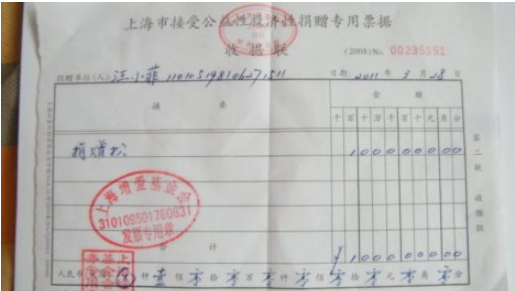 上海市接受公益性救济性捐赠专用票据
收据联
(2008)No. 00235151
捐赠单位(人) 汪小菲
日期 2011 年 3 月 28 日
摘 要
金 额
千 百 十 万 千 百 十 元 角 分
捐赠款
1 0 0 0 0 0 0 0 0
第二联 收据联
上海增爱基金会
310109501780631
发票专用章
合 计
¥ 1 0 0 0 0 0 0 0 0
人民币 仟 壹 佰 零 拾 零 万 零 仟 零 佰 零 拾 零 元 零 角 零 分